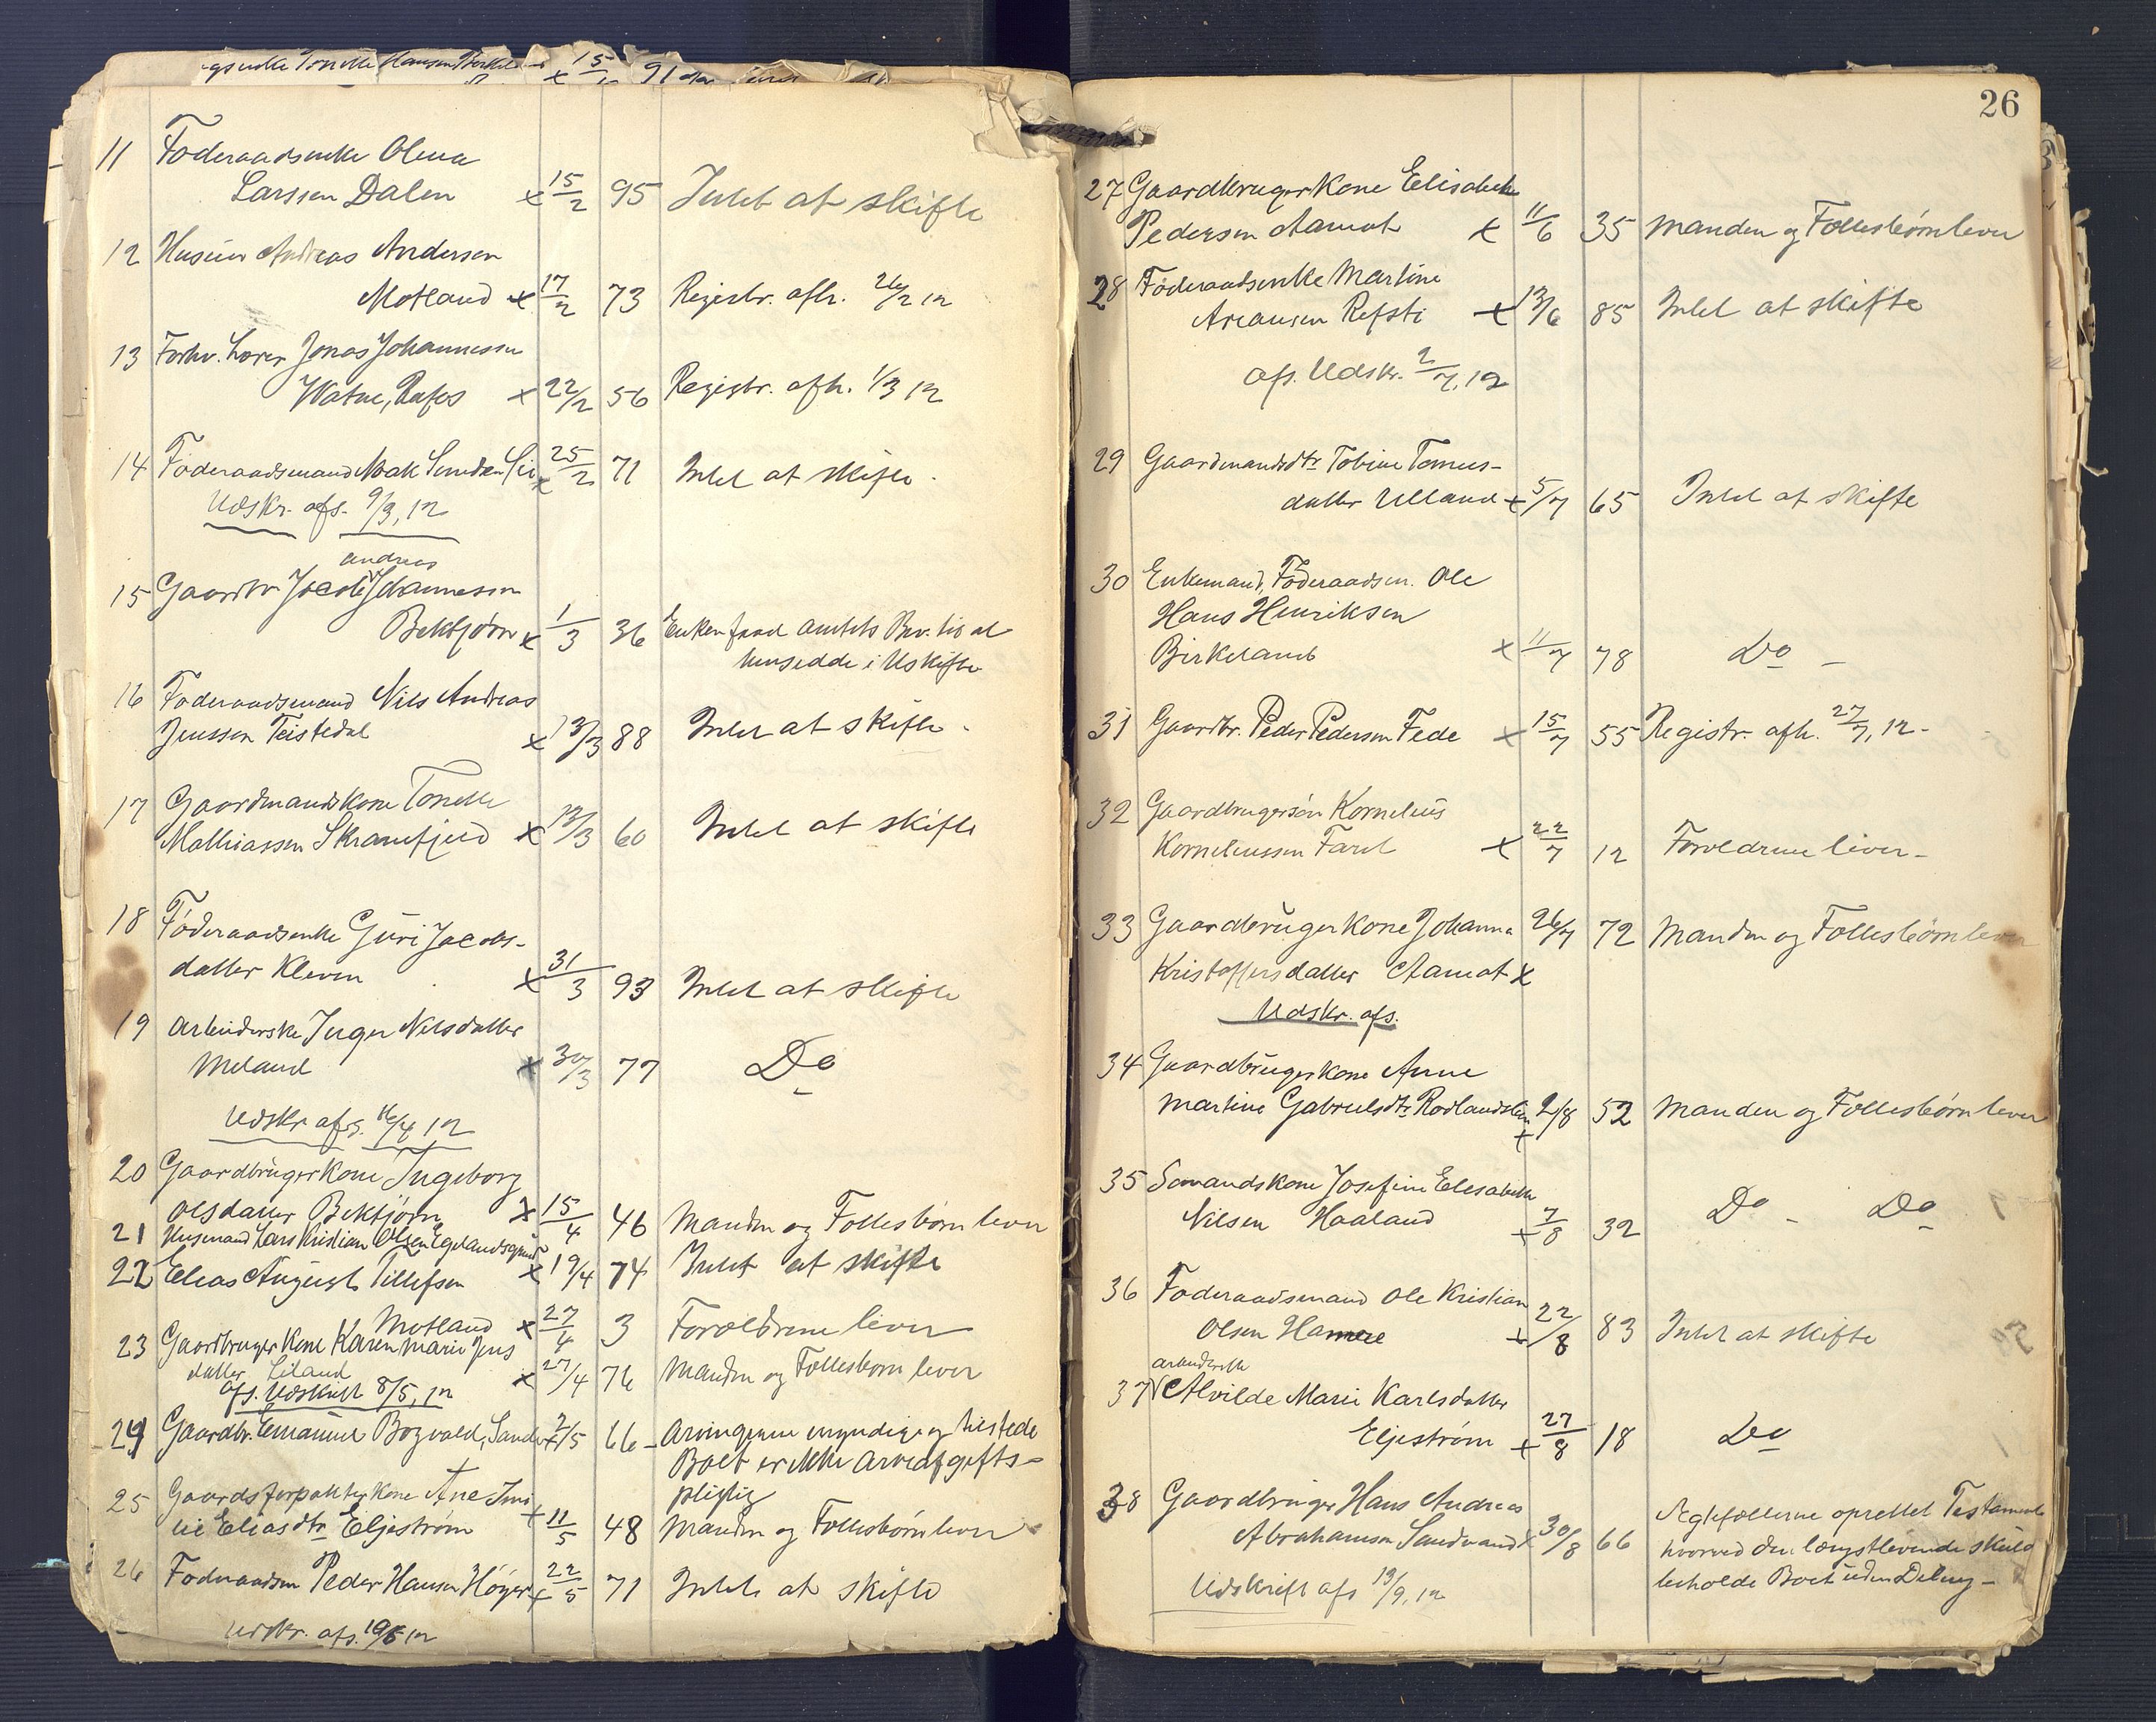 11 Føderaadsenke Olena
Larssen Dalen x 15/2 95 Intet at skifte
12 Husmor Andreas Andersen
Motland x 17/2 73 Registr. afh. 26/2 12
13 Forhv. Lærer Jonas Johannessen
Watne, Rafos x 22/2 56 Registr. afh. 1/3 12
14 Føderaadsmand Noak Sundsen x 25/2 71 Intet at skifte.
Udskr. afs. 9/3, 12
andreas
15 Gaardbr Jacob Johannesen
Bektjørn x 1/3 36 Enken faad Amtets Bev. til at
hensedde i Uskifte
16 Føderaadsmand Nils Andreas
Jenssen Teistedal x 13/3 88 Intet at skifte.
17 Gaardmandskone Tonette
Mathiassen Skranefjeld x 13/3 60 Intet at skifte
18 Føderaadsenke Guri Jacobs-
datter Kleven x 31/3 93 Intet at skifte
19 Arbeiderske Inger Nilsdatter
Meland x 30/3 77 Do
Udskr. afs. 16/4 12
20 Gaardbrugerkone Ingeborg
Olsdatter Bektjørn x 15/4 46 Manden og Fællesbørn lever
21 Husmand Lars Kristian Olsen Egelandsgrind x 19/4 74 Intet at skifte
22 Elias August Tillefsen
Motland x 27/4 3 Forældrene lever
23 Gaardbruger Kone Karen Marie Jens
datter Liland x 27/4 76 Manden og Fællesbørn lever
afs. Udskrift 8/5, 12
24 Gaardbr. Emanuel Bogvald, Sande x 2/5 66 Arvingerne myndige og tilstede
Boet er ikke arveafgifts-
pligtig
25 Gaardsforpakterkone Ane Emi
lie Eliasdtr Eljestrøm x 11/5 48 Manden og Fællesbørn lever
26 Føderaadsm Peder Hansen Høyer x 22/5 71 Intet at skifte
Udskr. afs. 19/6 12
26
27 Gaardbruger Kone Elisabeth
Pedersen Aamot x 11/6 35 Manden og Fællesbørn lever
28 Føderaadsenke Martine
Areausen Refsti x 13/6 85 Intet at skifte
afs. Udskr. 2/7, 12
29 Gaardmandsdtr Tobine Tønnes-
datter Ulland x 5/7 65 Intet at skifte
30 Enkemand, Føderaadsm. Ole
Hans Henriksen
Birkeland x 11/7 78 Do -
31 Gaardbr. Peder Pedersen Fede x 15/7 55 Registr. afh. 27/7, 12-
32 Gaardbrugersøn Kornelius
Korneliussen Faret x 22/7 12 Forældrene lever-
33 Gaardbruger Kone Johanna 26/7 72 Manden og Fællesbørn lever
Kristoffersdatter Aamot x
Udskr. afs.
34 Gaardbruger Kone Anne
Martine Gabrielsdtr Rødlandslien x 2/8 52 Manden og Fællesbørn lever
35 Sømandskone Josefine Elesabeth
Nilsen Haaland x 7/8 32 Do - Do
36 Føderaadsmand Ole Kristian
Olsen Hamre x 22/8 83 Intet at skifte
arbeiderske
37 Alvilde Marie Karlsdatter
Eljestrøm x 27/8 18 Do
38 Gaardbruger Hans Andreas
Abrahamsen Sandvand x 30/8 66 Ægtefællerne oprettet Testament
hvorved den længstlevende skuld
beholde Boet uden Deling-
Udskrift afs 13/9, 12